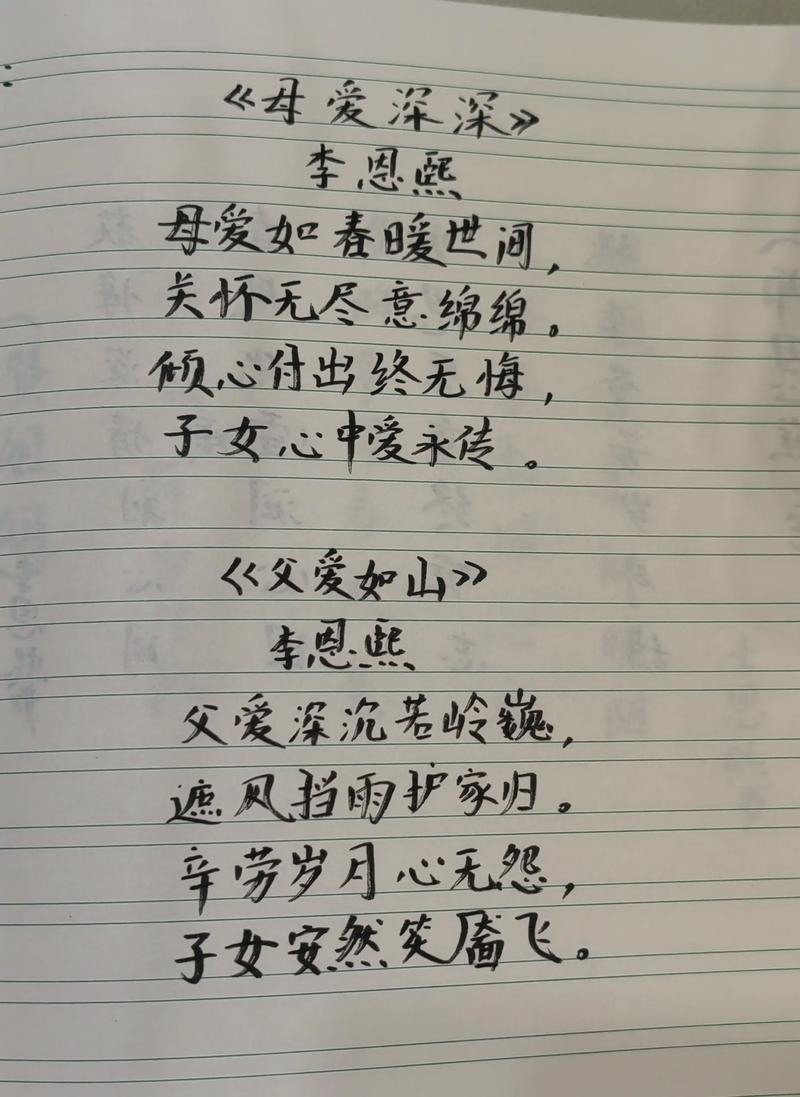 《母爱深深》
李恩熙
母爱如春暖世间，
关怀无尽意绵绵。
倾心付出终无悔，
子女心中爱永传。
《父爱如山》
李恩熙
父爱深沉若岭巍，
遮风挡雨护家归。
辛劳岁月心无怨，
子女安然笑飞。